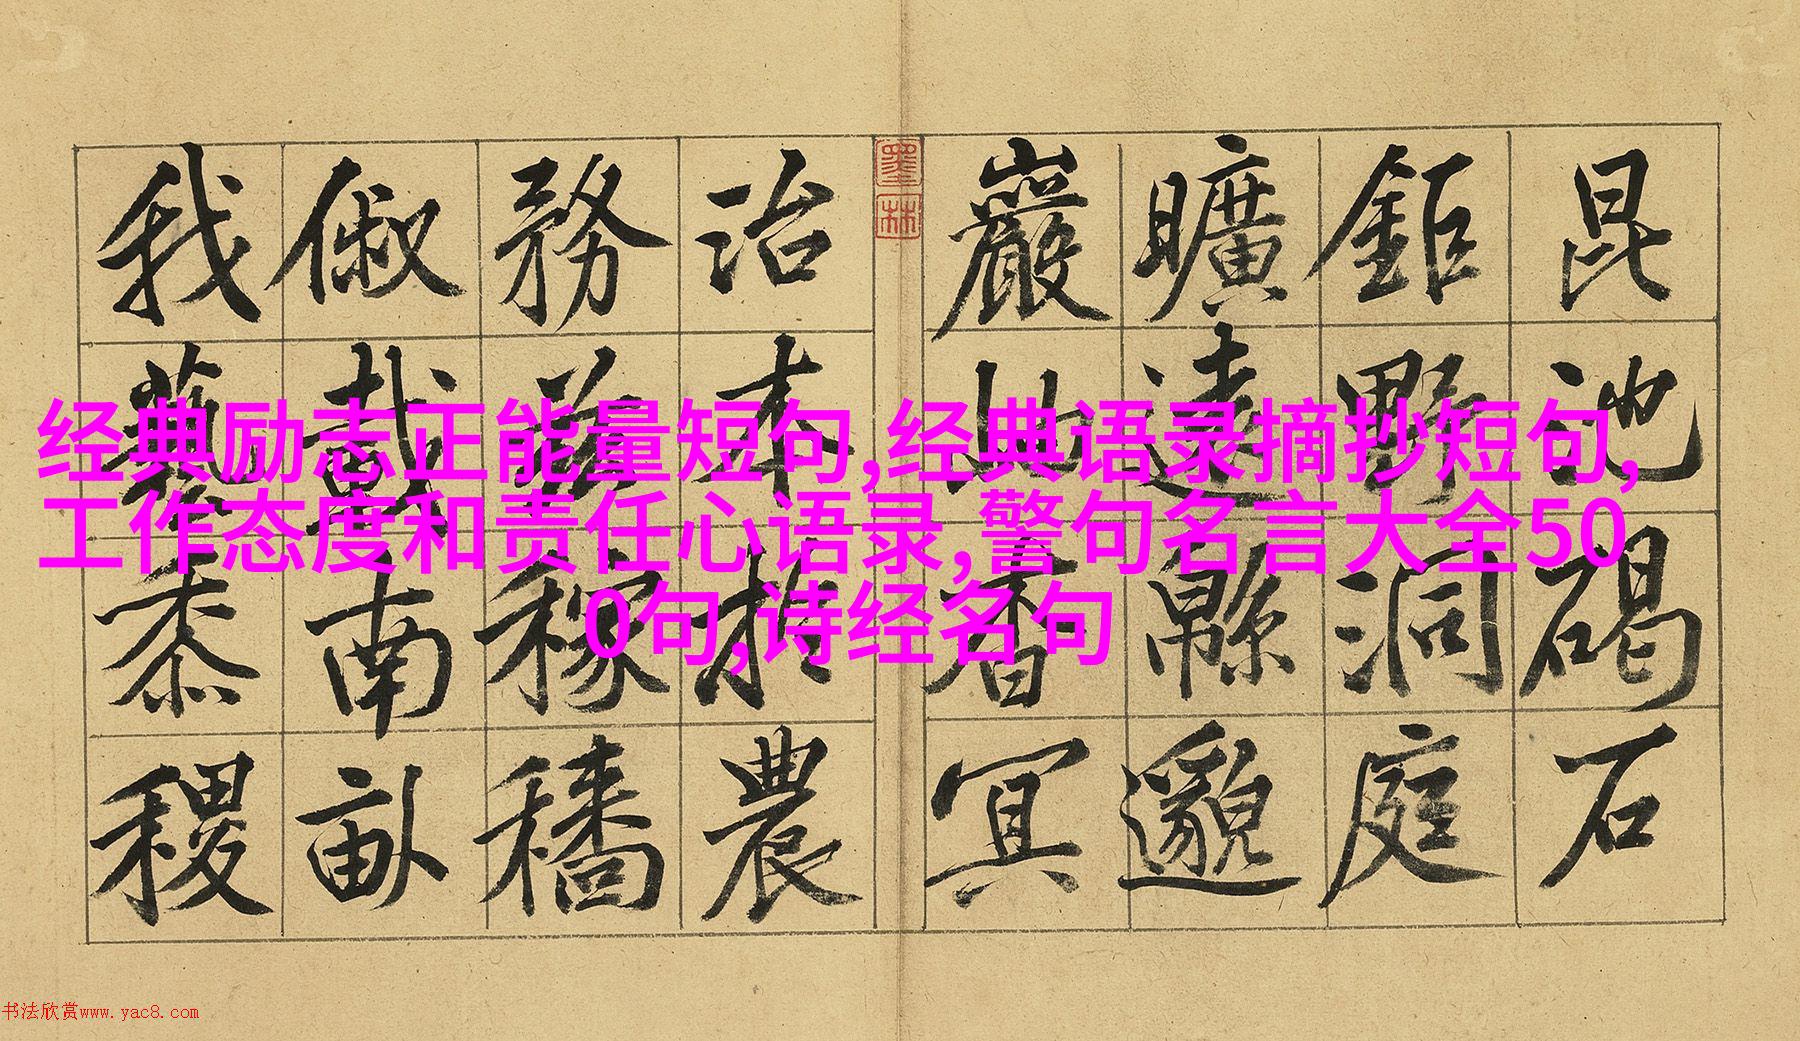 昆池碣石
鉅野洞庭
曠遠緜邈
巖岫杳冥
墨林
治本於農
務茲稼穡
俶載南畝
我藝黍稷
经典励志正能量短句,经典语录摘抄短句,
工作态度和责任心语录,警句名言大全50
0句,诗经名句
书法欣赏www.yac8.com